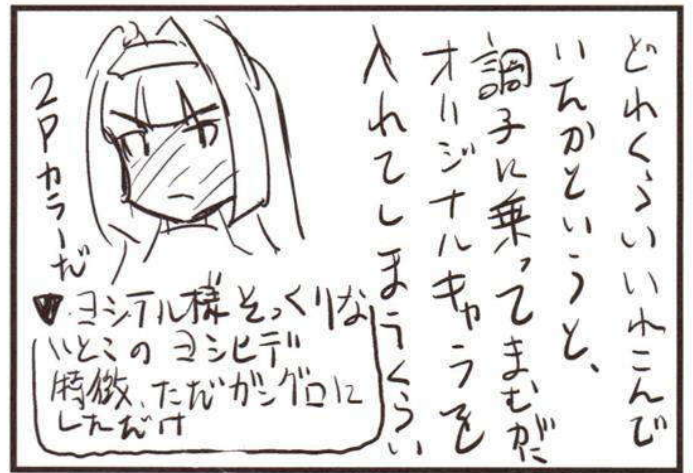 どれくらいいれこんで
いたかというと、
調子に乗ってまむがに
オリジナルキャラを
入れてしまうくらい
2Pカラーだ
▼ヨシテル様そっくりな
いとこのヨシヒデ
特徴、ただガングロに
しただけ